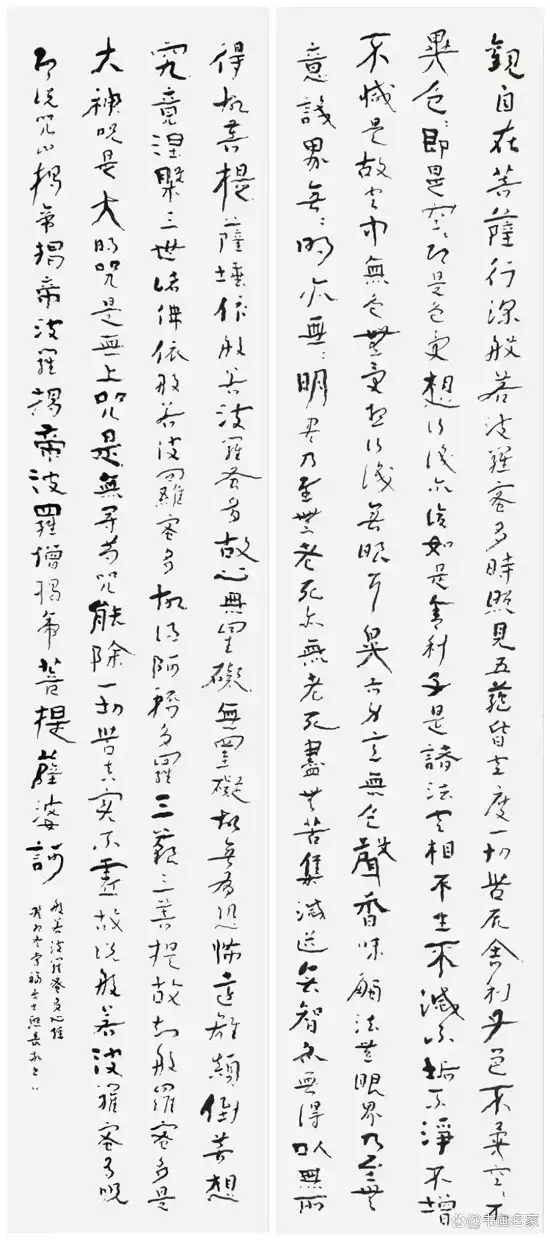 觀自在菩薩行深般若波羅蜜多時照見五蘊皆空度一切苦厄舍利子色不異空〻不
異色〻即是空〻即是色受想行識亦復如是舍利子是諸法空相不生不滅不垢不淨不增
不減是故空中無色無受想行識無眼耳鼻舌身意無色聲香味觸法無眼界乃至無
意識界無〻明亦無〻明盡乃至無老死亦無老死盡無苦集滅道無智亦無得以無所
得故菩提薩埵依般若波羅蜜多故心無罣礙無罣礙故無有恐怖遠離顛倒夢想
究竟涅槃三世諸佛依般若波羅蜜多故得阿耨多羅三藐三菩提故知般羅蜜多是
大神咒是大明咒是無上咒是無等等咒能除一切苦真實不虛故說般若波羅蜜多咒
即說咒曰揭帝揭帝波羅揭帝波羅僧揭帝菩提薩婆訶
般若波羅蜜多心經
癸卯冬
书画名家